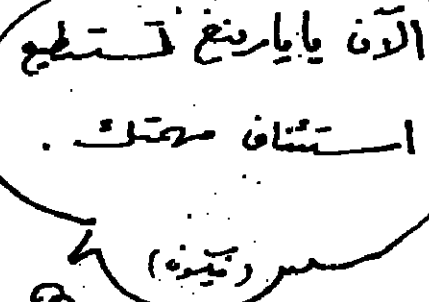 الآن يا يارينخ تستطيع
استئناف مهمتك .